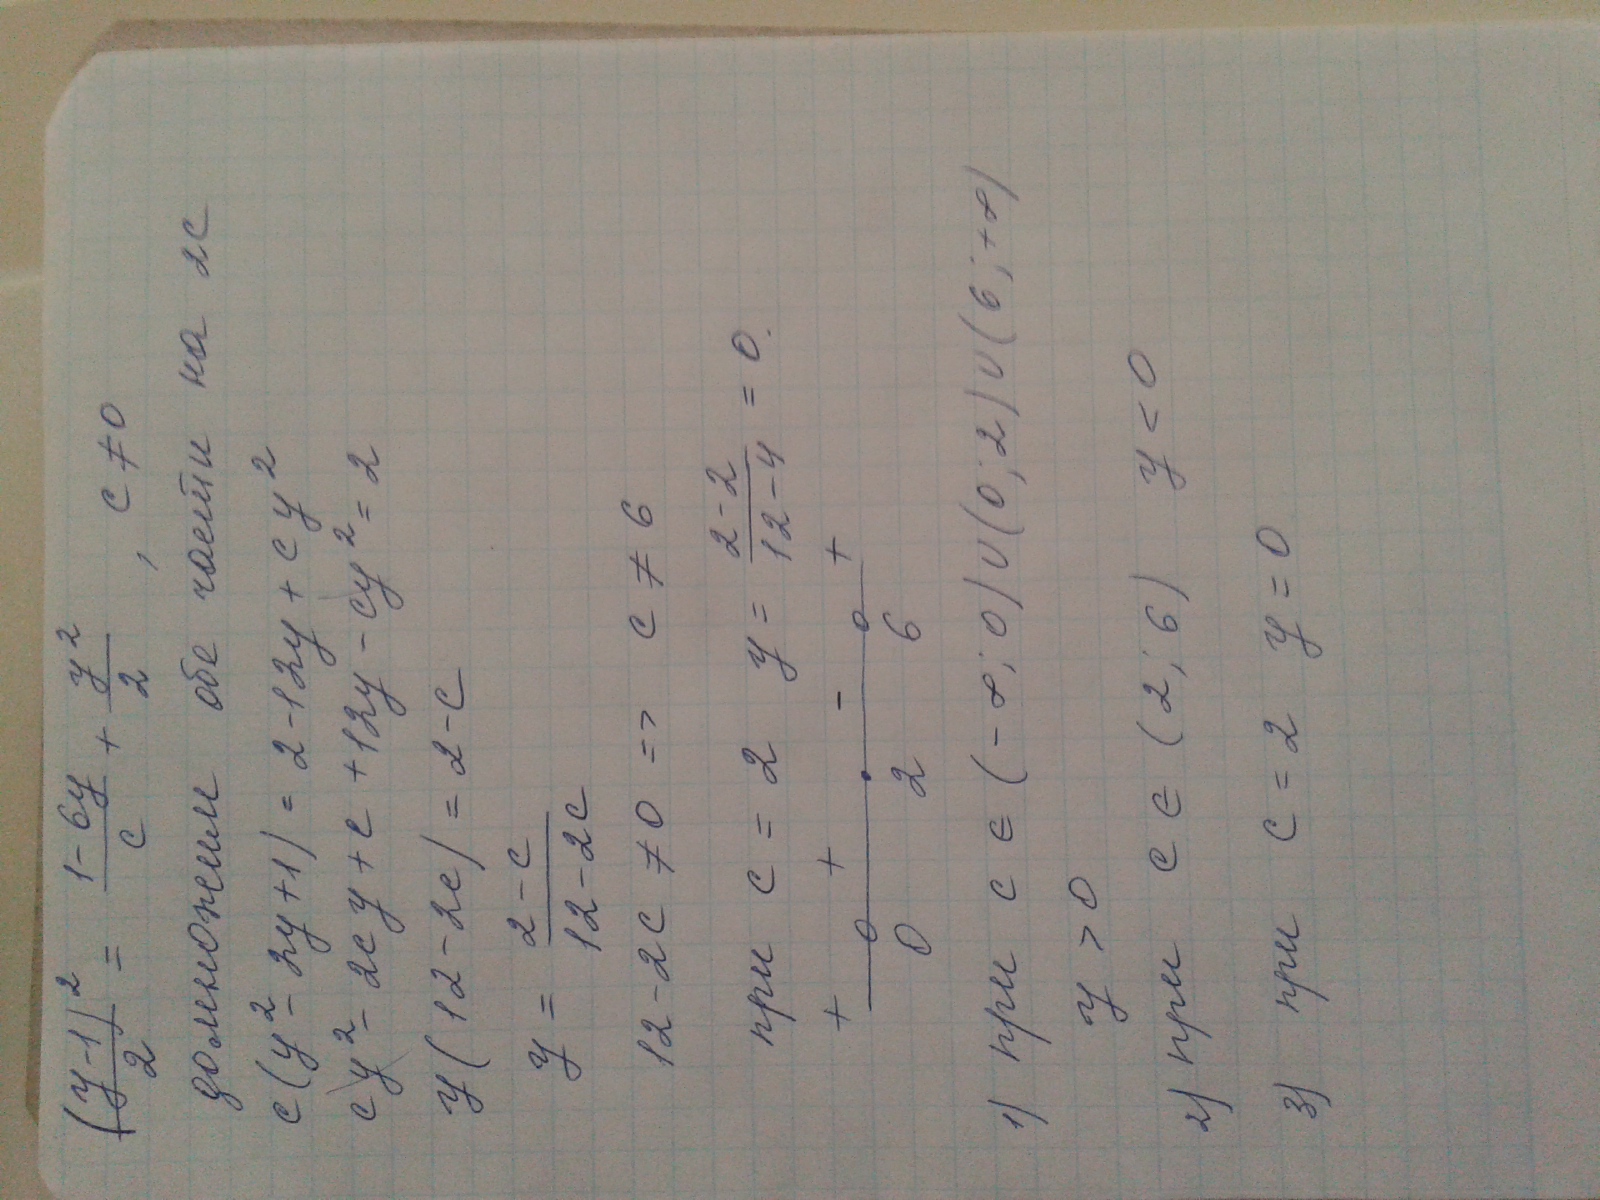 (y-1)²/2 = (1-6y)/c + y²/2 , c ≠ 0
домножим обе части на 2c
c(y²-2y+1) = 2-12y+cy²
cy²-2cy+c+12y-cy² = 2
y(12-2c) = 2-c
y = (2-c)/(12-2c)
12-2c ≠ 0 => c ≠ 6
при c = 2 y = (2-2)/(12-4) = 0.
+ + - +
0 2 6
1) при c ∈ (-∞; 0) ∪ (0; 2) ∪ (6; +∞)
y > 0
2) при c ∈ (2; 6) y < 0
3) при c = 2 y = 0